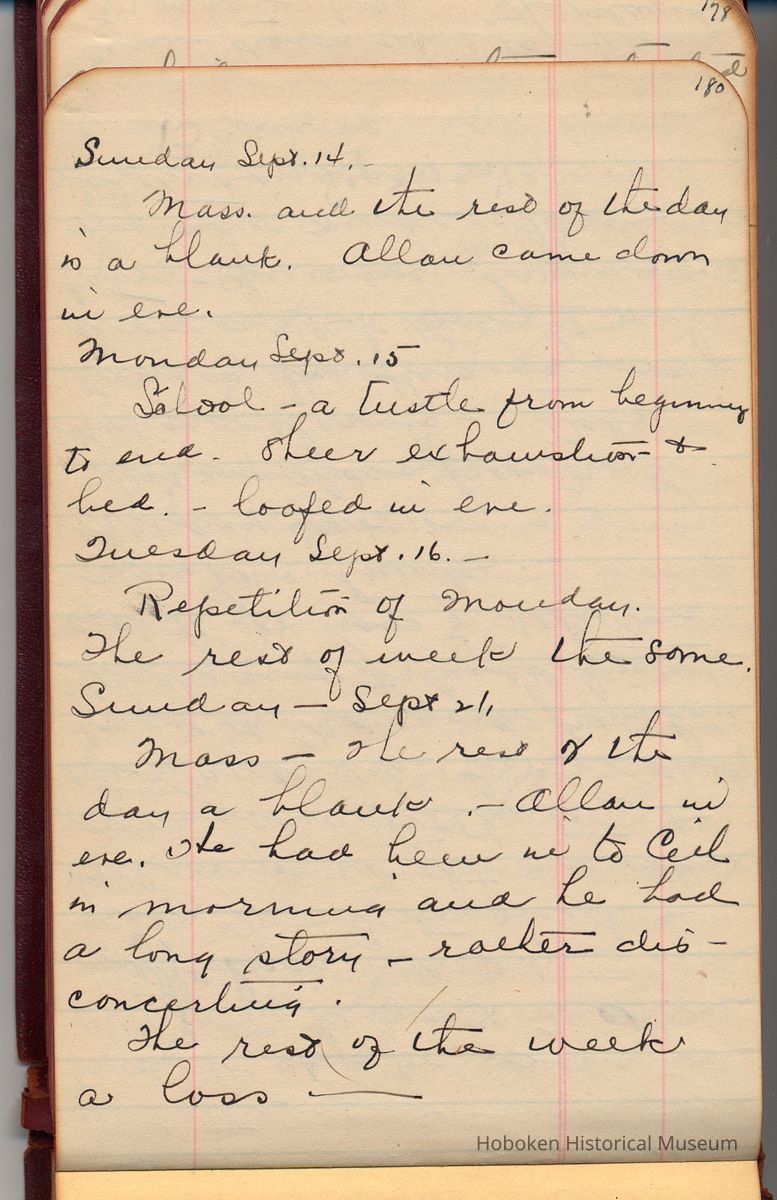 178
180
Sunday Sept. 14. -
Mass. and the rest of the day
is a blank. Allan came down
in eve.
Monday Sept. 15
School - a tustle from beginning
to end. Sheer exhaustion &
bed. - loafed in eve.
Tuesday Sept. 16. -
Repetition of Monday.
The rest of week the same.
Sunday - Sept 21,
Mass - The rest of the
day a blank. - Allan in
eve. He had been in to Ceil
in morning and he had
a long story - rather dis-
concerting.
The rest of the week
a loss -
Hoboken Historical Museum